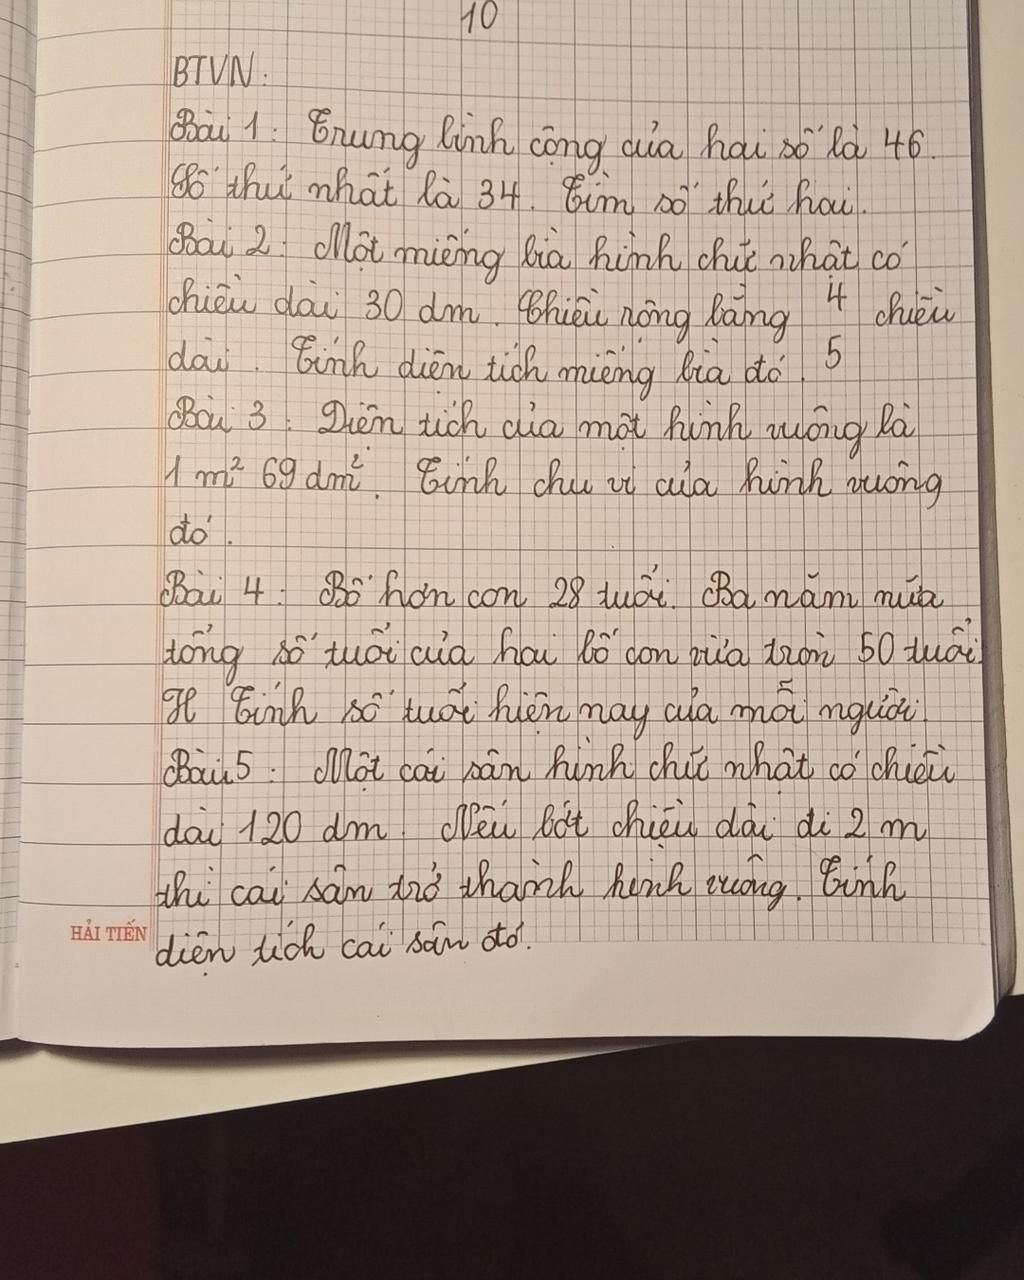 10
BTVN:
Bài 1: Trung bình cộng của hai số là 46.
Số thứ nhất là 34. Tìm số thứ hai.
Bài 2: Một miếng bìa hình chữ nhật có
chiều dài 30 dm. Chiều rộng bằng 4/5 chiều
dài. Tính diện tích miếng bìa đó.
Bài 3: Diện tích của một hình vuông là
1 m² 69 dm². Tính chu vi của hình vuông
đó.
Bài 4: Bố hơn con 28 tuổi. Ba năm nữa
tổng số tuổi của hai bố con vừa tròn 50 tuổi.
H Tính số tuổi hiện nay của mỗi người.
Bài 5: Một cái sân hình chữ nhật có chiều
dài 120 dm. Nếu bớt chiều dài đi 2 m
thì cái sân trở thành hình vuông. Tính
HẢI TIẾN
diện tích cái sân đó.